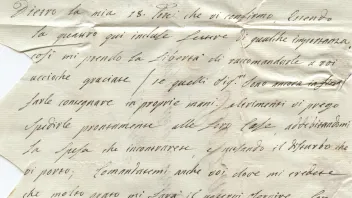 Dietro la mia 28. Pass.^o che vi confermo. Essendo
la quattro qui incluse Lettere di qualche importanza,
così mi prendo la libertà di raccomandarle a voi
acciochè graciate (se quelli Sig.^ri
farle consegnare in proprie mani. altrimenti vi prego
spedirle prontamente alle loro Case addebitandomi
la spesa che incontrarete, e scusando il disturbo che
vi porto; Comandatemi anche voi dove mi credere
che molto grato mi sarà il potervi servire